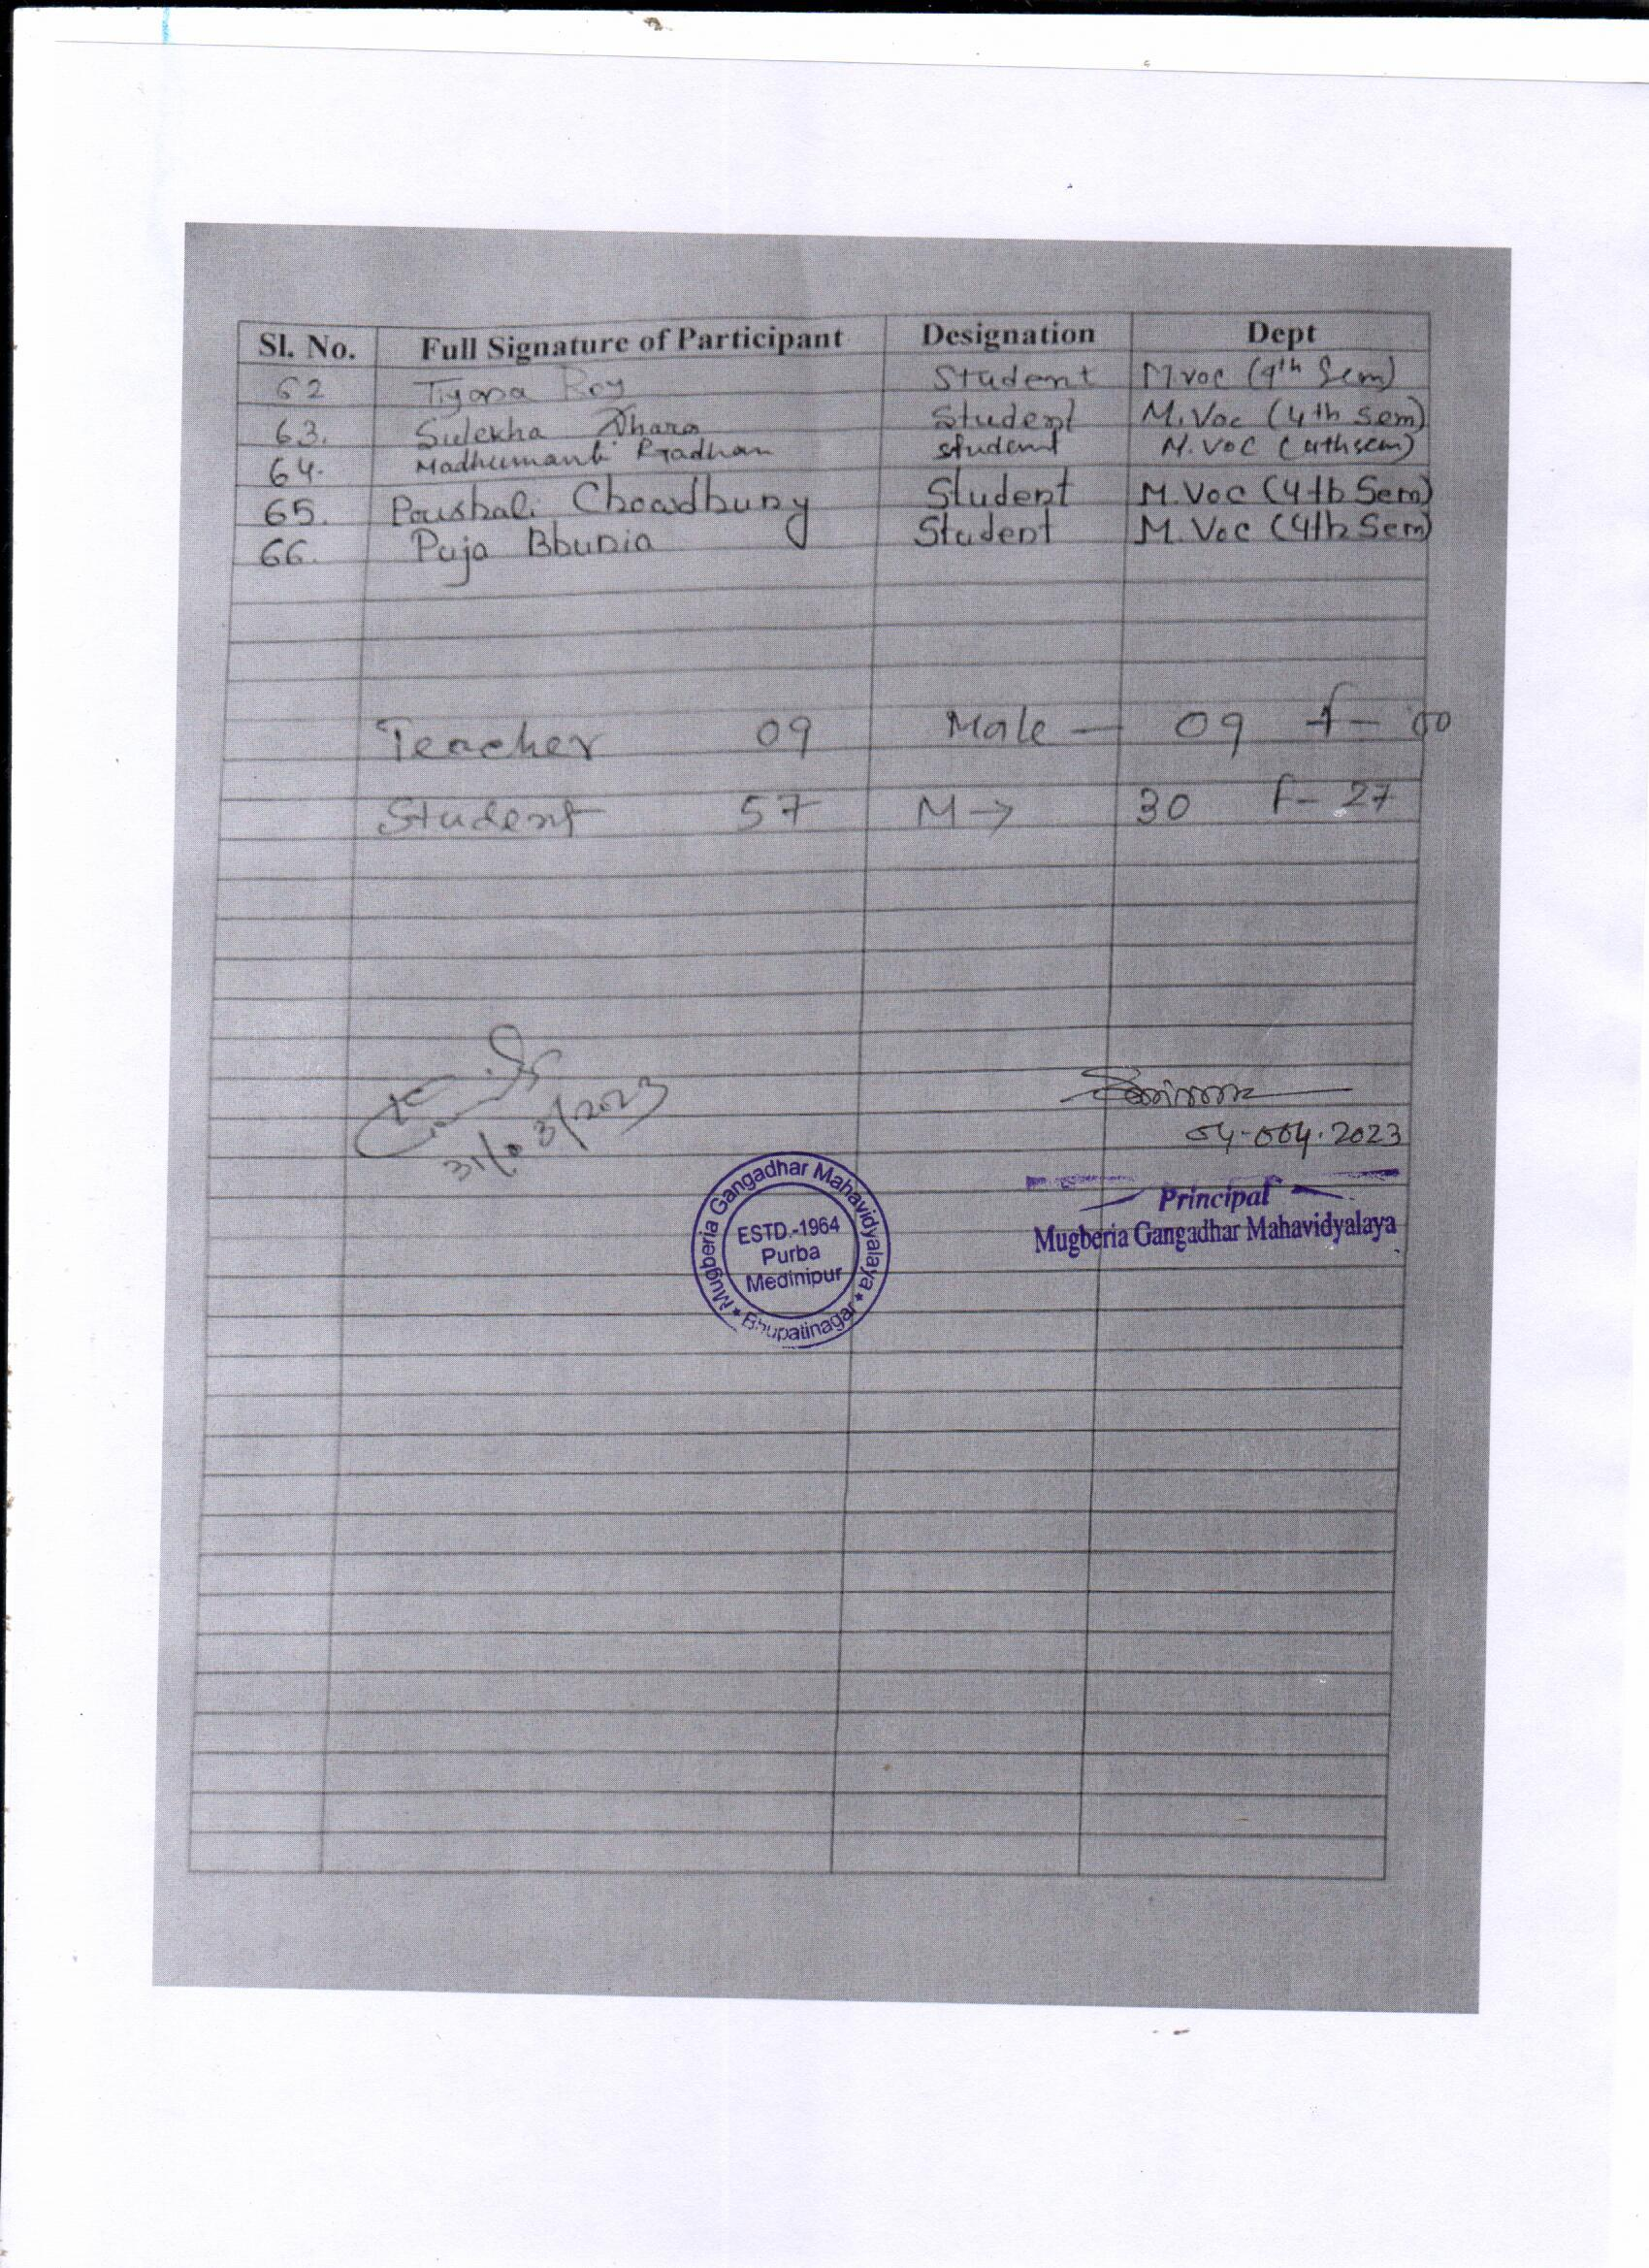 Sl. No. Full Signature of Participant Designation Dept
62 Tiyasa Roy Student M.voc (4th Sem)
63. Sulekha Dhara Student M.Voc (4th sem)
64. Madhumanti Pradhan student M.VOC (4thsem)
65. Poushali Chowdhury Student M.Voc (4th Sem)
66. Puja Bhunia Student M.Voc (4th Sem)
Teacher 09 Male — 09 f — 00
Student 57 M → 30 f - 27
31/03/2023
04-004.2023
Principal
Mugberia Gangadhar Mahavidyalaya
Mugberia Gangadhar Mahavidyalaya
ESTD.-1964
Purba
Medinipur
Bhupatinagar